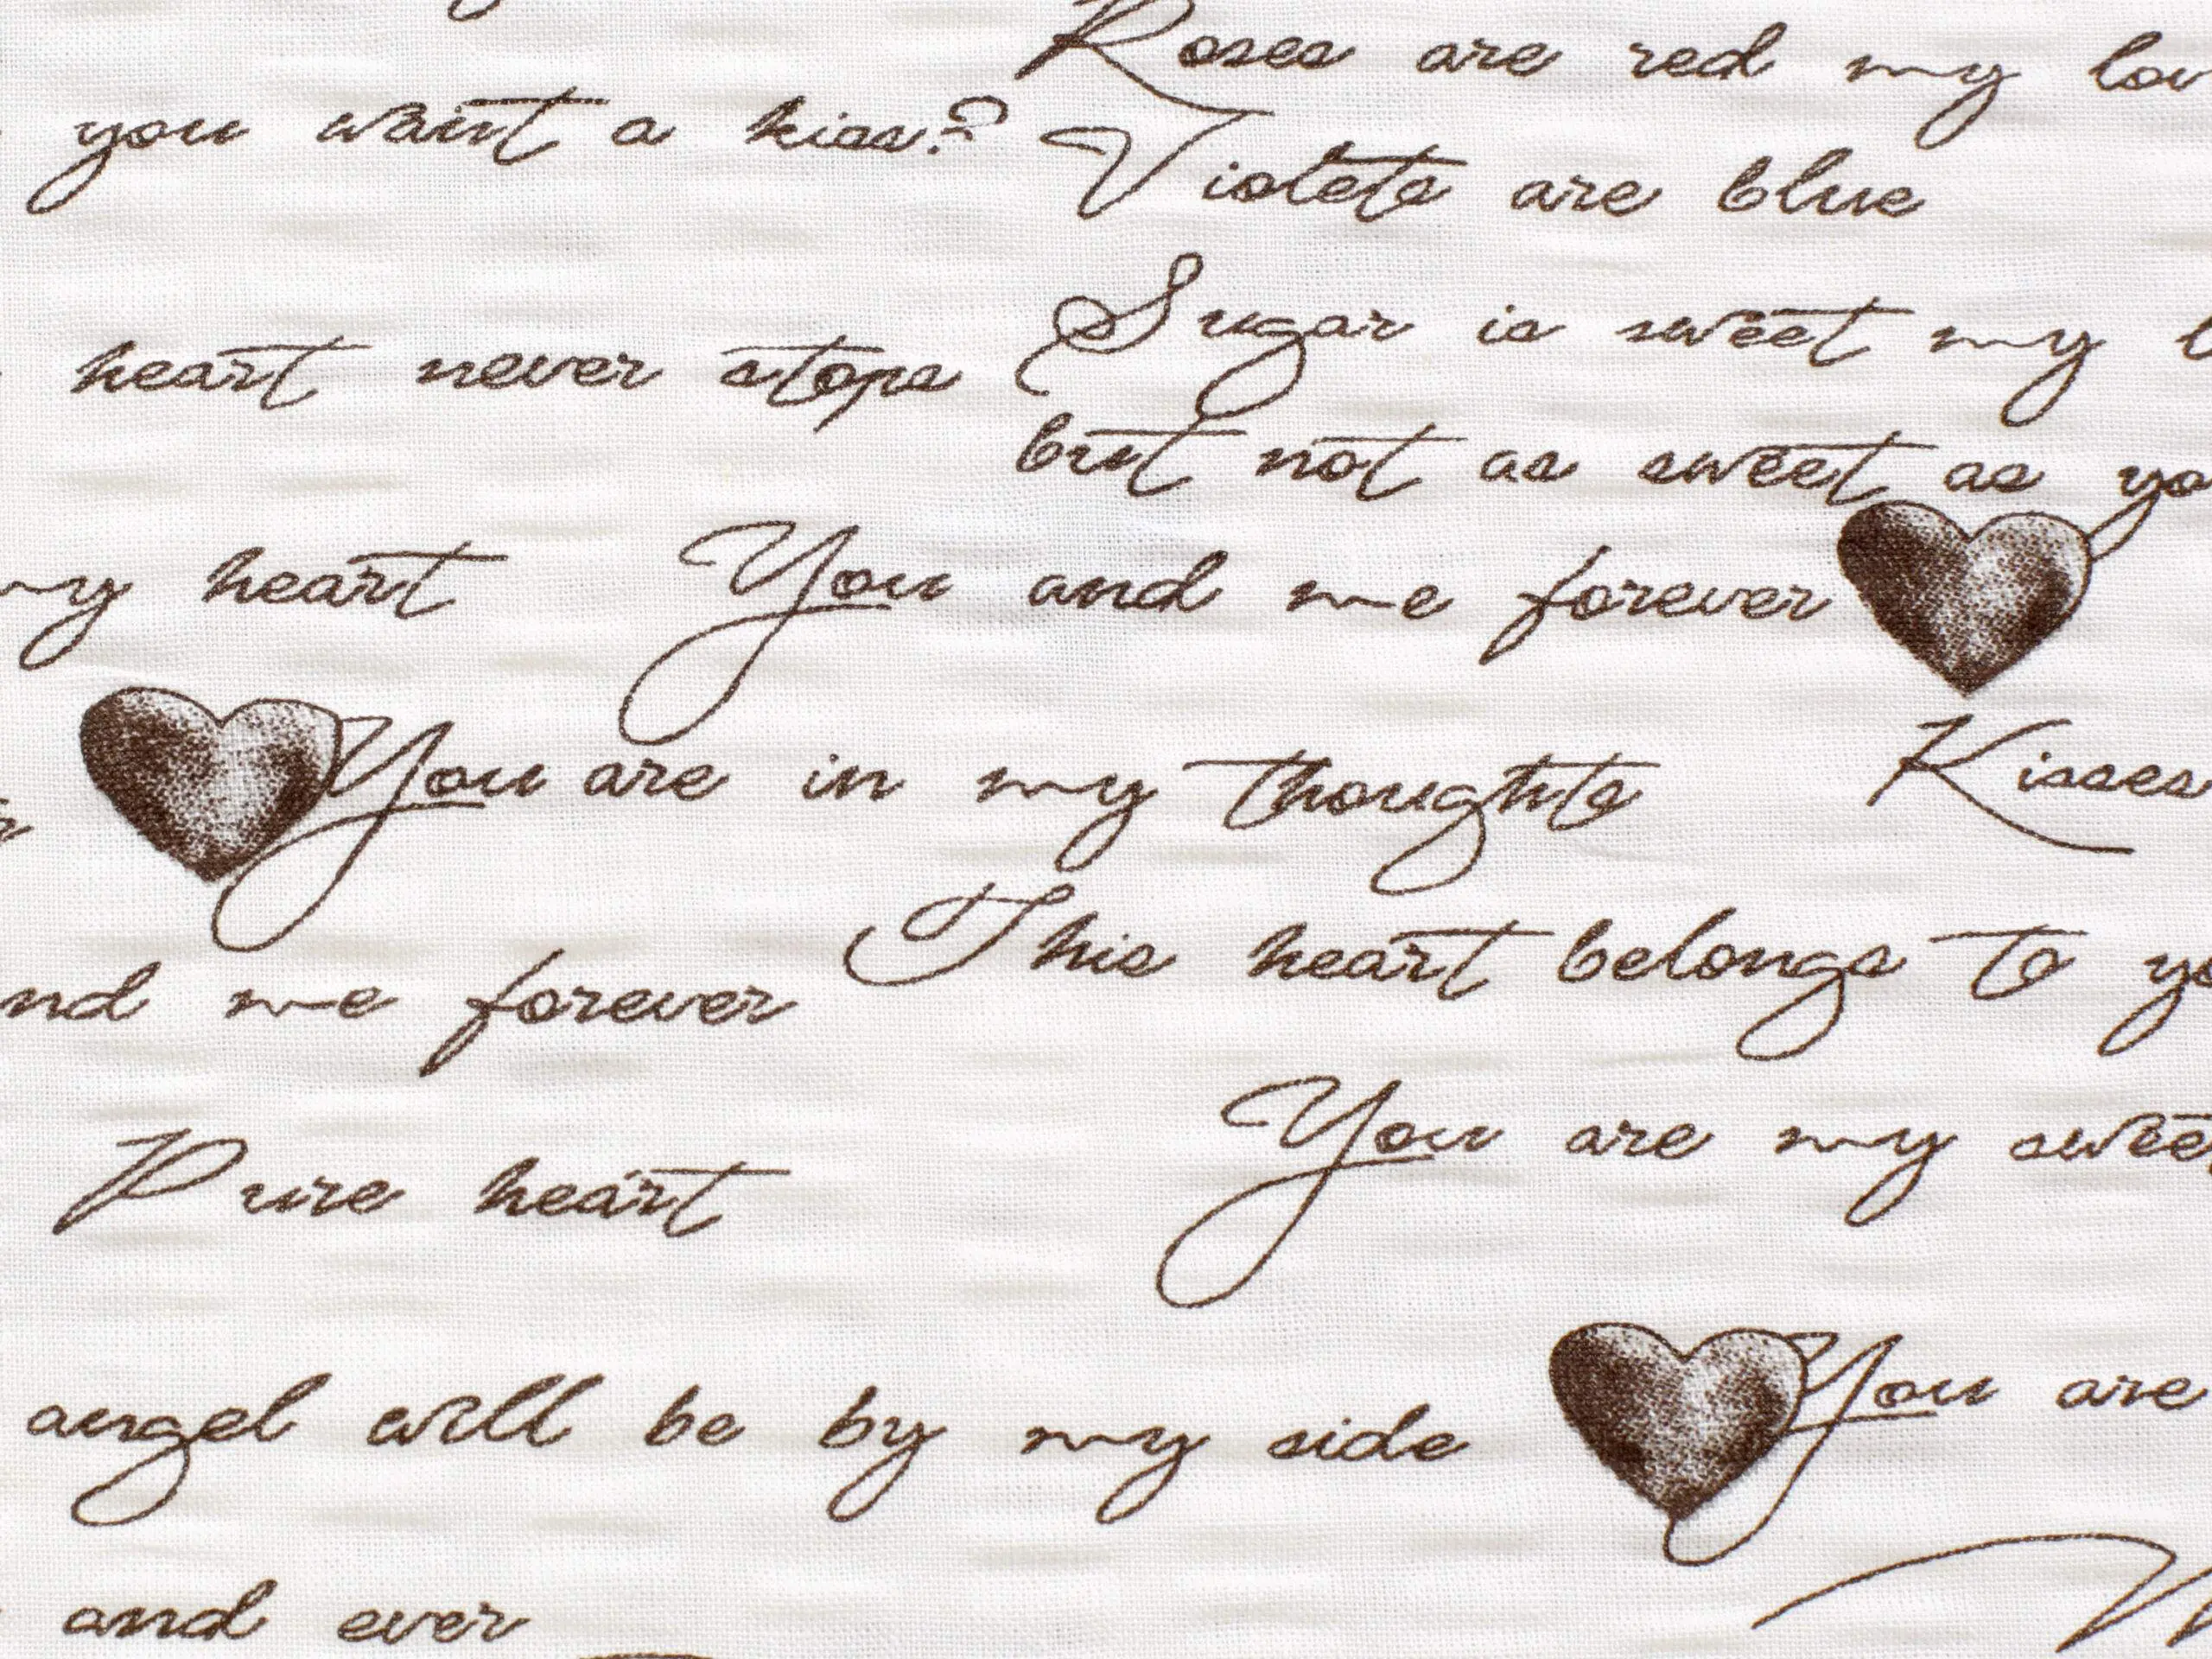 Roses are red my lov
you want a kiss?
Violets are blue
Sugar is sweet my
heart never stops
but not as sweet as yo
my heart
You and me forever
You are in my thoughts
Kisses
This heart belongs to yo
nd me forever
You are my swee
Pure heart
You are
angel will be by my side
and ever